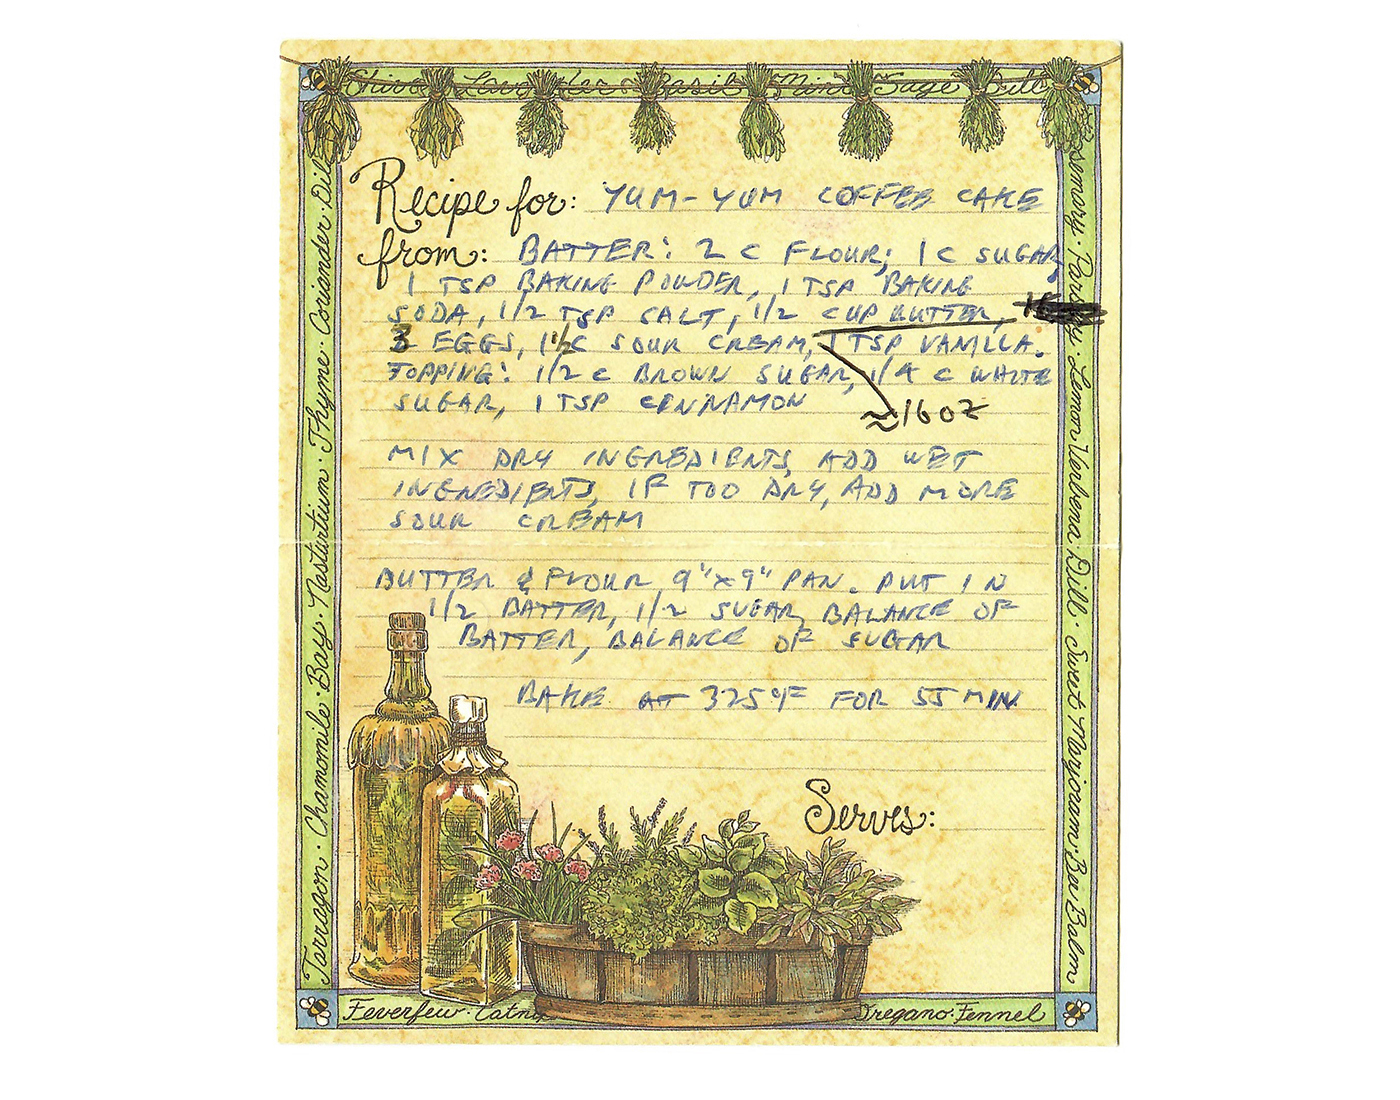 Chive Lavender Basil Mint Sage Dill
Recipe for: YUM-YUM COFFEE CAKE
from: BATTER: 2 C FLOUR; 1 C SUGAR,
1 TSP BAKING POWDER, 1 TSP BAKING
SODA, 1/2 TSP SALT, 1/2 CUP BUTTER,
3 EGGS, 1 1/2 C SOUR CREAM, 1 TSP VANILLA.
TOPPING: 1/2 C BROWN SUGAR, 1/4 C WHITE
SUGAR, 1 TSP CINNAMON
≈16 OZ
MIX DRY INGREDIENTS, ADD WET
INGREDIENTS, IF TOO DRY, ADD MORE
SOUR CREAM
BUTTER & FLOUR 9"x9" PAN. PUT IN
1/2 BATTER, 1/2 SUGAR, BALANCE OF
BATTER, BALANCE OF SUGAR
BAKE AT 325°F FOR 55 MIN.
Serves:
Tarragon · Chamomile · Bay · Nasturtium · Thyme · Coriander · Dill
Rosemary · Parsley · Lemon Verbena · Dill · Sweet Marjoram · Bee Balm
Feverfew · Catnip Oregano · Fennel